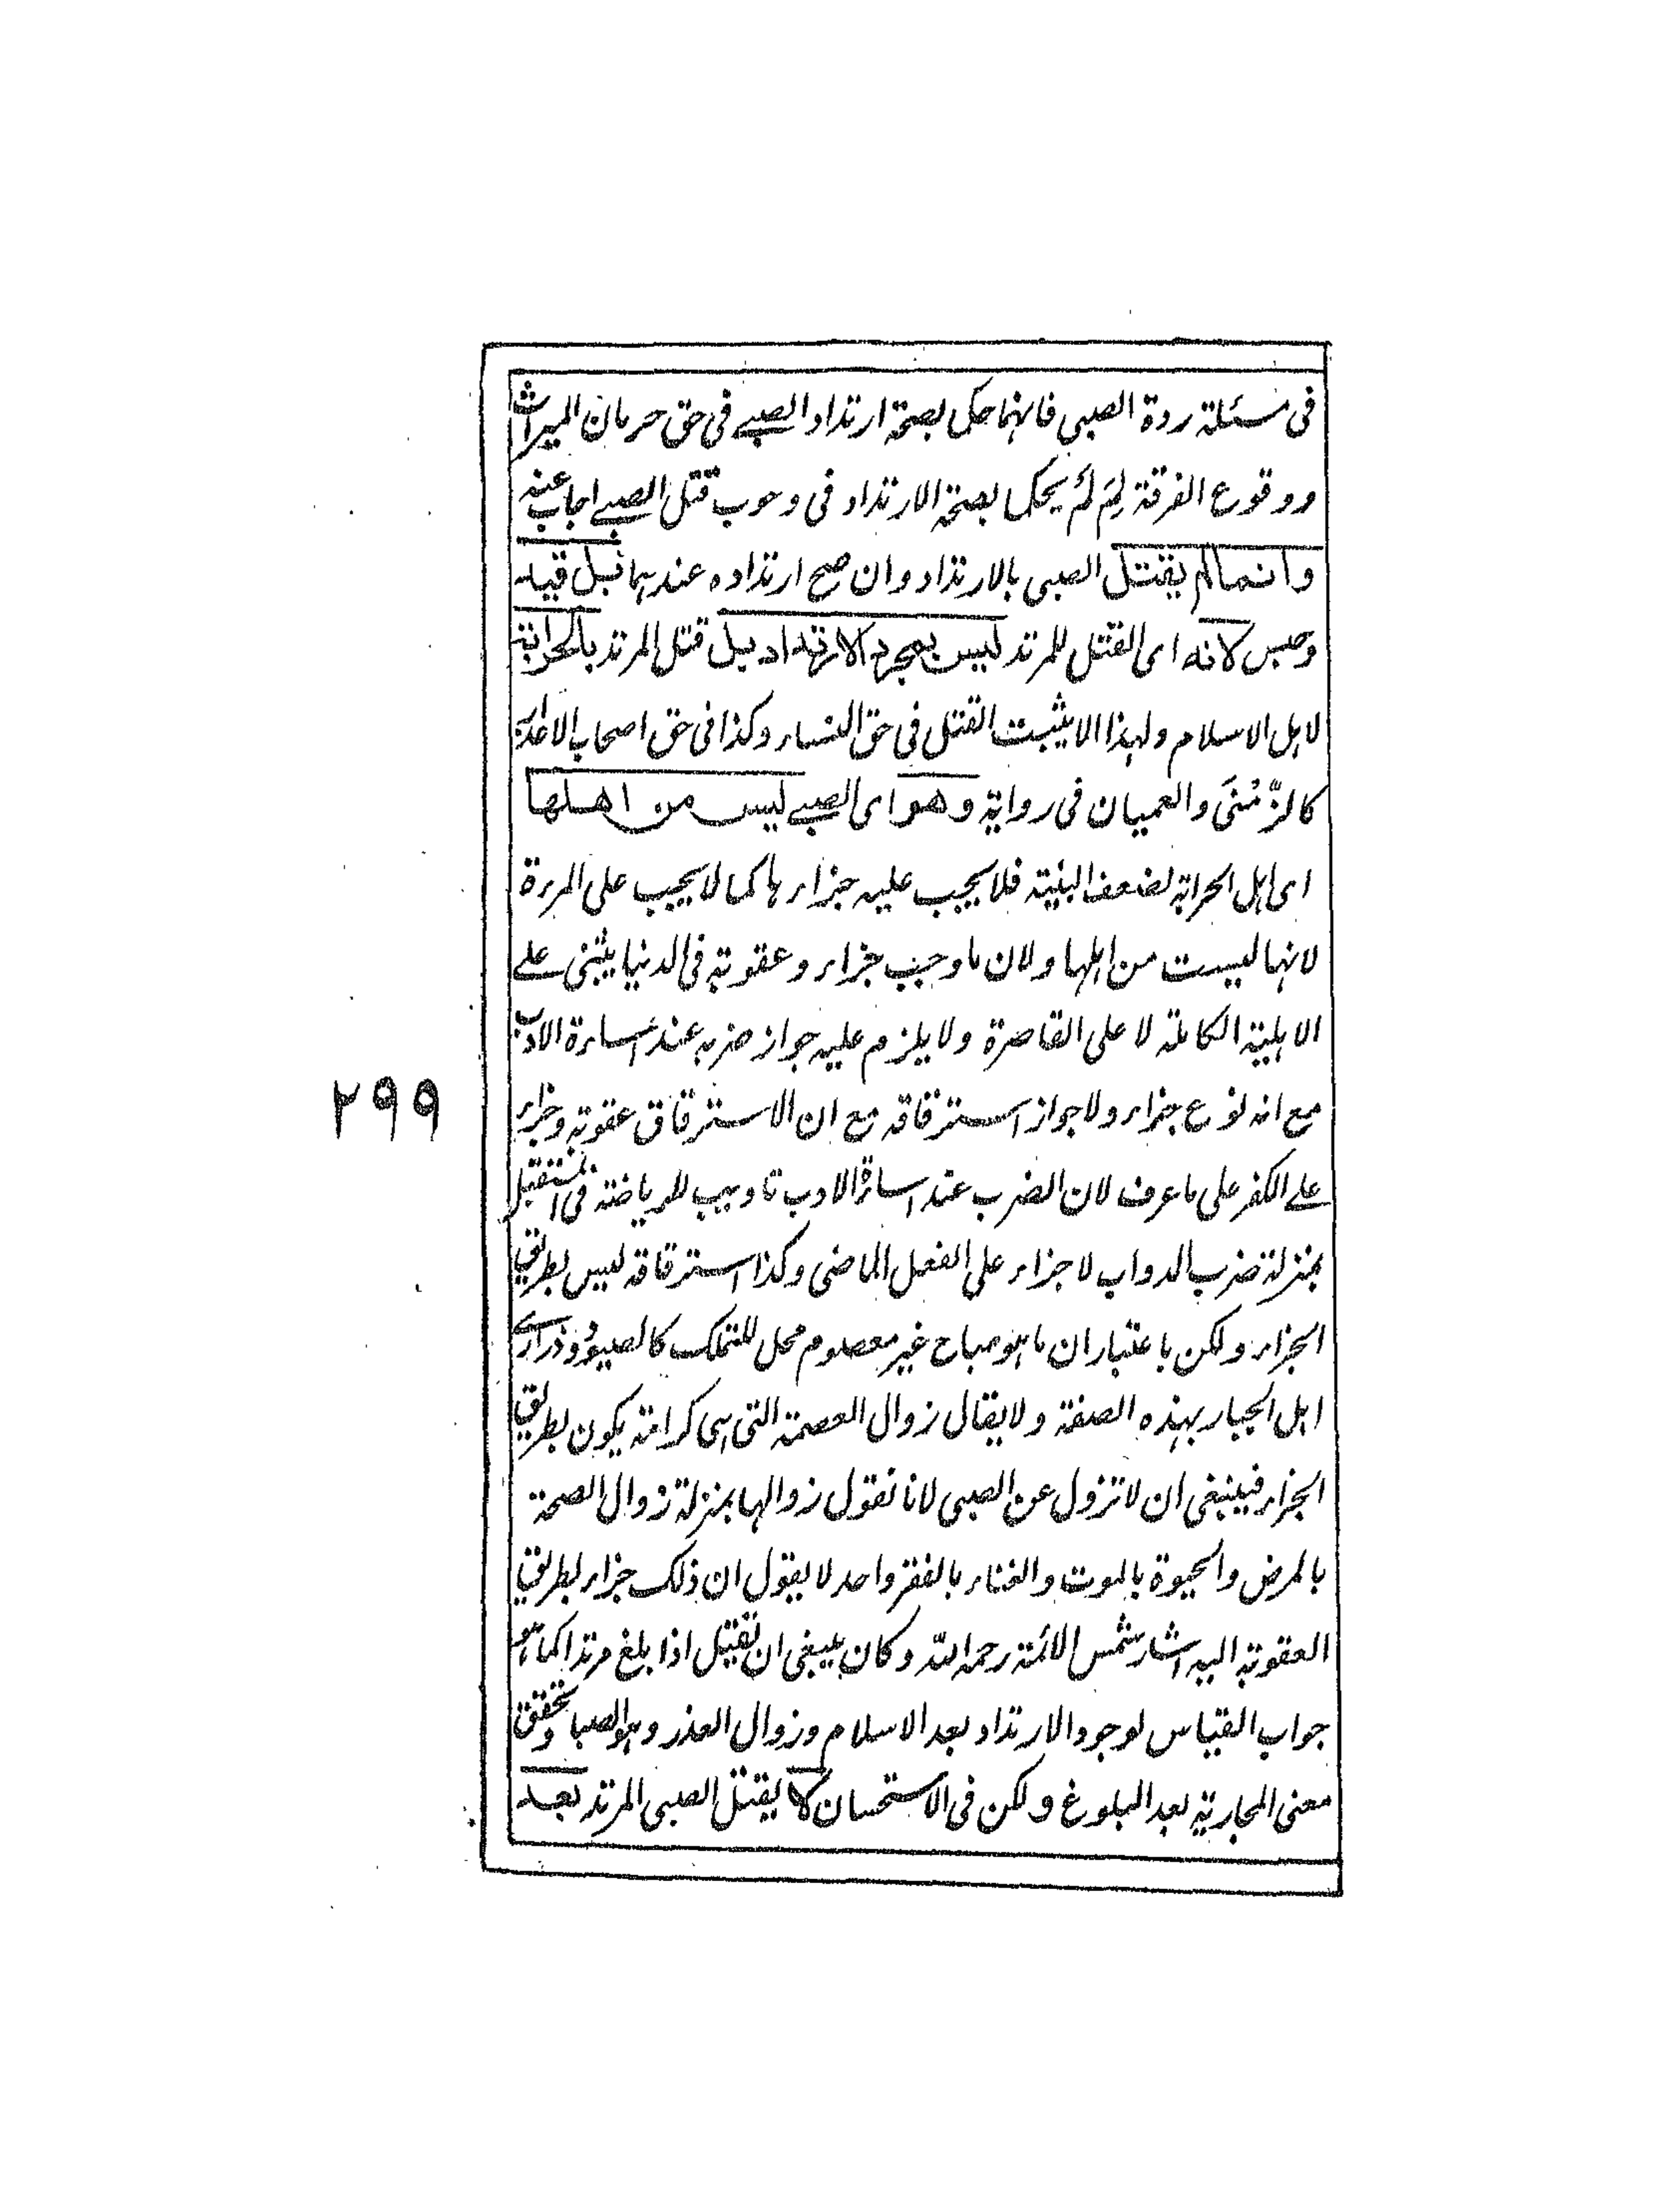 فى مسئلة ردة الصبى فانهما حكما بصحة ارتداد الصبے فى حق حرمان الميراث
ووقوع الفرقة لِمَ لَمْ يحكما بصحة الارتداد فى وجوب قتل الصبے اجاب عنه
وانما لم يقتل الصبى بالارتداد وان صح ارتداده عندهما قبل
وحبس لانه اى القتل للمرتد ليس بمجرد الارتداد بل قتل المرتد بالحرابة
لاهل الاسلام ولهذا لا يثبت القتل فى حق النساء وكذا فى حق اصحاب الاعذار
كالزَّمْنىَ والعميان فى رواية وهو اى الصبے ليس من اهلها
اى اهل الحرابة لضعف البنية فلا يجب عليه جزاءها كما لا يجب على المرءة
لانها ليست من اهلها ولان ما وجب جزاء وعقوبة فى الدنيا يبتنى علے
الاهلية الكاملة لا على القاصرة ولا يلزم عليه جواز ضربه عند اساءة الادب
مع انه نوع جزاء ولا جواز استرقاقه مع ان الاسترقاق عقوبة وجزاء
علے الكفر على ما عرف لان الضرب عند اساءة الادب تاديب للرياضة فى المستقبل
بمنزلة ضرب الدواب لا جزاء على الفعل الماضى وكذا استرقاقه ليس بطريق
الجزاء ولكن باعتبار ان ما هو مباح غير معصوم محل للتملك كالصيود وذرارے
اهل الحرب بهذه الصفة ولا يقال زوال العصمة التى هى كرامة يكون بطريق
الجزاء فينبغى ان لا تزول عن الصبى لانا نقول زوالها بمنزلة زوال الصحة
بالمرض والحيوة بالموت والغناء بالفقر واحد لا يقول ان ذلك جزاء بطريق
العقوبة اليه اشار شمس الائمة رحمه الله وكان ينبغى ان يقتل اذا بلغ مرتدا كما هو
جواب القياس لوجود الارتداد بعد الاسلام وزوال العذر وهو الصبا وتحقق
معنى المحاربة بعد البلوغ ولكن فى الاستحسان لا يقتل الصبى المرتد بعد
٢٩٩